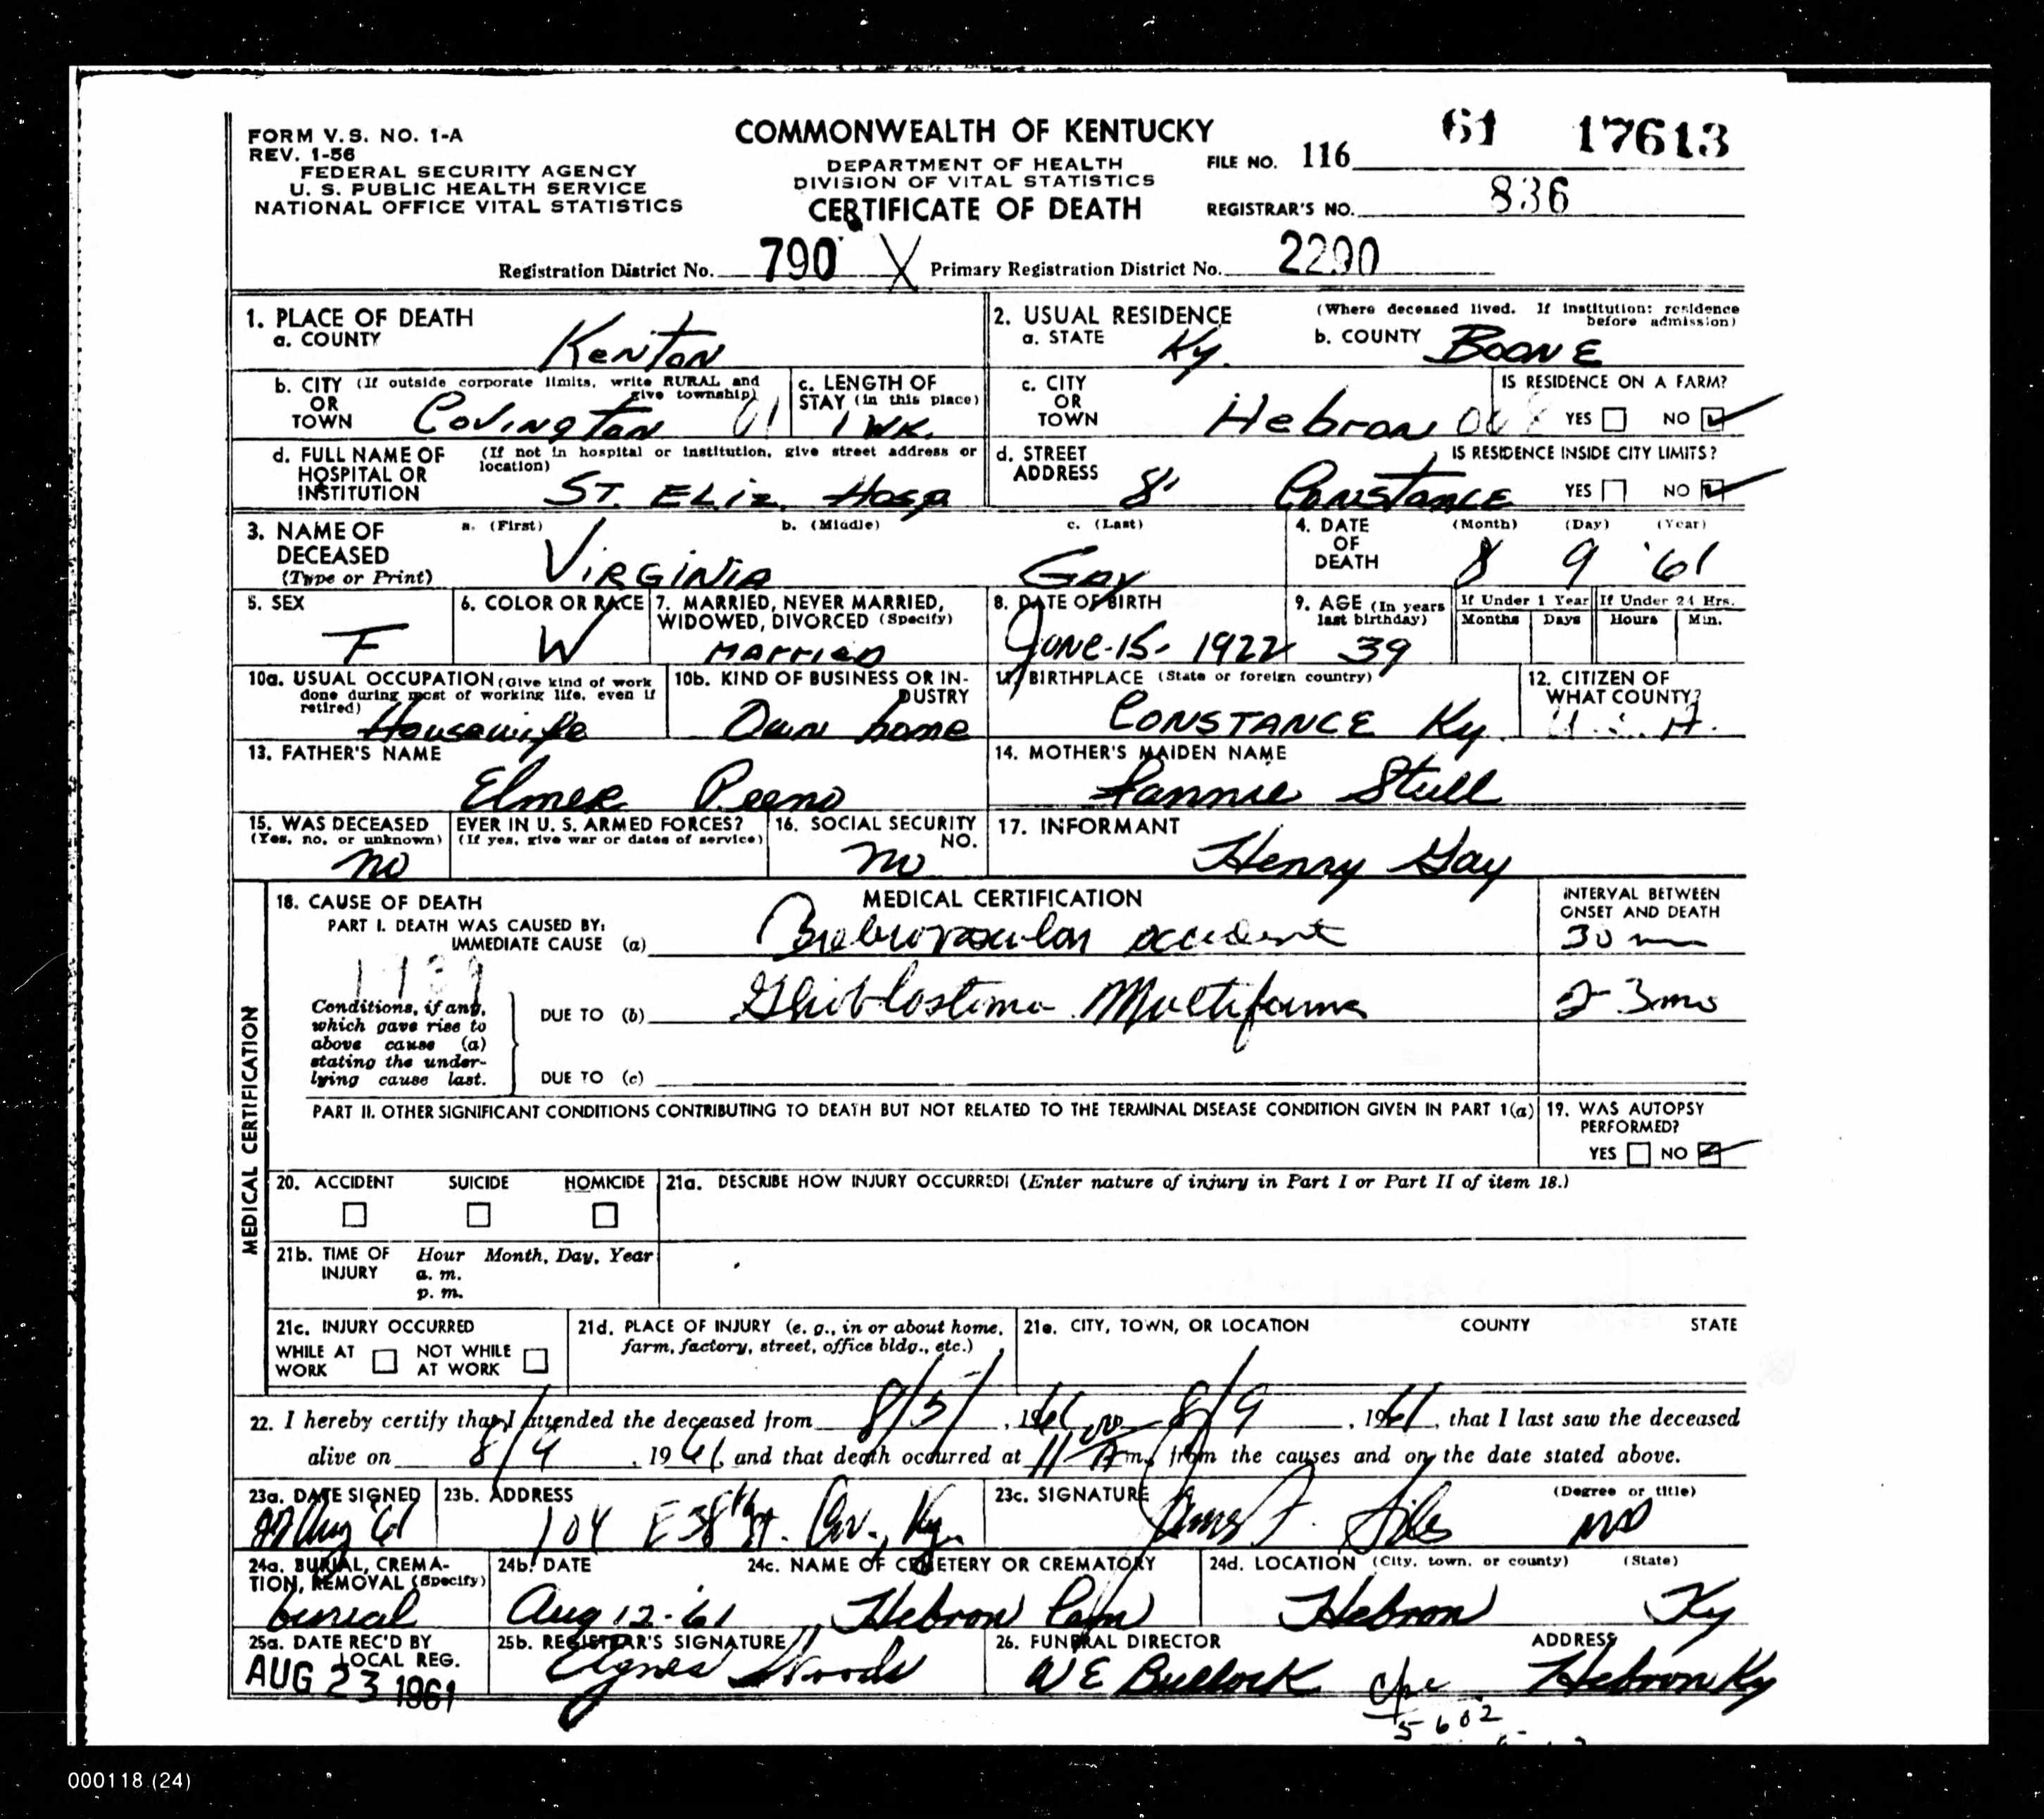 FORM V.S. NO. 1-A
REV. 1-56
FEDERAL SECURITY AGENCY
U. S. PUBLIC HEALTH SERVICE
NATIONAL OFFICE VITAL STATISTICS
COMMONWEALTH OF KENTUCKY
DEPARTMENT OF HEALTH
DIVISION OF VITAL STATISTICS
CERTIFICATE OF DEATH
FILE NO. 116 61 17613
REGISTRAR'S NO. 836
Registration District No. 790 X Primary Registration District No. 2290
1. PLACE OF DEATH
a. COUNTY Kenton
2. USUAL RESIDENCE (Where deceased lived. If institution: residence before admission)
a. STATE Ky. b. COUNTY BOONE
b. CITY (If outside corporate limits, write RURAL and give township)
OR
TOWN Covington 01
c. LENGTH OF
STAY (in this place)
1 WK.
c. CITY
OR
TOWN Hebron
IS RESIDENCE ON A FARM?
YES NO
d. FULL NAME OF (If not in hospital or institution, give street address or location)
HOSPITAL OR
INSTITUTION ST. ELIZ. Hosp
d. STREET
ADDRESS Constance
IS RESIDENCE INSIDE CITY LIMITS?
YES NO
3. NAME OF
DECEASED
(Type or Print)
a. (First) b. (Middle) c. (Last)
VIRGINIA GAY
4. DATE
OF
DEATH
(Month) (Day) (Year)
8 9 '61
5. SEX
F
6. COLOR OR RACE
W
7. MARRIED, NEVER MARRIED,
WIDOWED, DIVORCED (Specify)
MARRIED
8. DATE OF BIRTH
JUNE-15-1922
9. AGE (In years
last birthday)
39
If Under 1 Year If Under 24 Hrs.
Months Days Hours Min.
10a. USUAL OCCUPATION (Give kind of work
done during most of working life, even if
retired)
Housewife
10b. KIND OF BUSINESS OR IN-
DUSTRY
Own home
11. BIRTHPLACE (State or foreign country)
CONSTANCE Ky.
12. CITIZEN OF
WHAT COUNTY?
13. FATHER'S NAME
Elmer Peeno
14. MOTHER'S MAIDEN NAME
Fannie Stull
15. WAS DECEASED EVER IN U. S. ARMED FORCES?
(Yes, no, or unknown) (If yes, give war or dates of service)
no
16. SOCIAL SECURITY
NO.
no
17. INFORMANT
Henry Gay
MEDICAL CERTIFICATION
18. CAUSE OF DEATH
MEDICAL CERTIFICATION
INTERVAL BETWEEN
ONSET AND DEATH
PART I. DEATH WAS CAUSED BY:
IMMEDIATE CAUSE (a) Cerebrovascular accident 30
Conditions, if any,
which gave rise to
above cause (a)
stating the under-
lying cause last.
DUE TO (b) Glioblastoma Multiforma 2-3 mo
DUE TO (c)
PART II. OTHER SIGNIFICANT CONDITIONS CONTRIBUTING TO DEATH BUT NOT RELATED TO THE TERMINAL DISEASE CONDITION GIVEN IN PART 1(a)
19. WAS AUTOPSY
PERFORMED?
YES NO
20. ACCIDENT SUICIDE HOMICIDE
21a. DESCRIBE HOW INJURY OCCURRED (Enter nature of injury in Part I or Part II of item 18.)
21b. TIME OF Hour Month, Day, Year
INJURY a. m.
p. m.
21c. INJURY OCCURRED
WHILE AT NOT WHILE
WORK AT WORK
21d. PLACE OF INJURY (e. g., in or about home,
farm, factory, street, office bldg., etc.)
21e. CITY, TOWN, OR LOCATION COUNTY STATE
22. I hereby certify that I attended the deceased from 8/5/, 1961, 8/9, 1961, that I last saw the deceased
alive on 8/9, 1961, and that death occurred at 11 00 Am. from the causes and on the date stated above.
23a. DATE SIGNED
Aug '61
23b. ADDRESS
104 E 38th St. Cov., Ky.
23c. SIGNATURE (Degree or title)
James F. MD
24a. BURIAL, CREMA-
TION, REMOVAL (Specify)
burial
24b. DATE
Aug 12-61
24c. NAME OF CEMETERY OR CREMATORY
Hebron Cem
24d. LOCATION (City, town, or county) (State)
Hebron Ky
25a. DATE REC'D BY
LOCAL REG.
AUG 23 1961
25b. REGISTRAR'S SIGNATURE
Agnes Woods
26. FUNERAL DIRECTOR ADDRESS
W E Bullock Hebron Ky
5602
000118 (24)